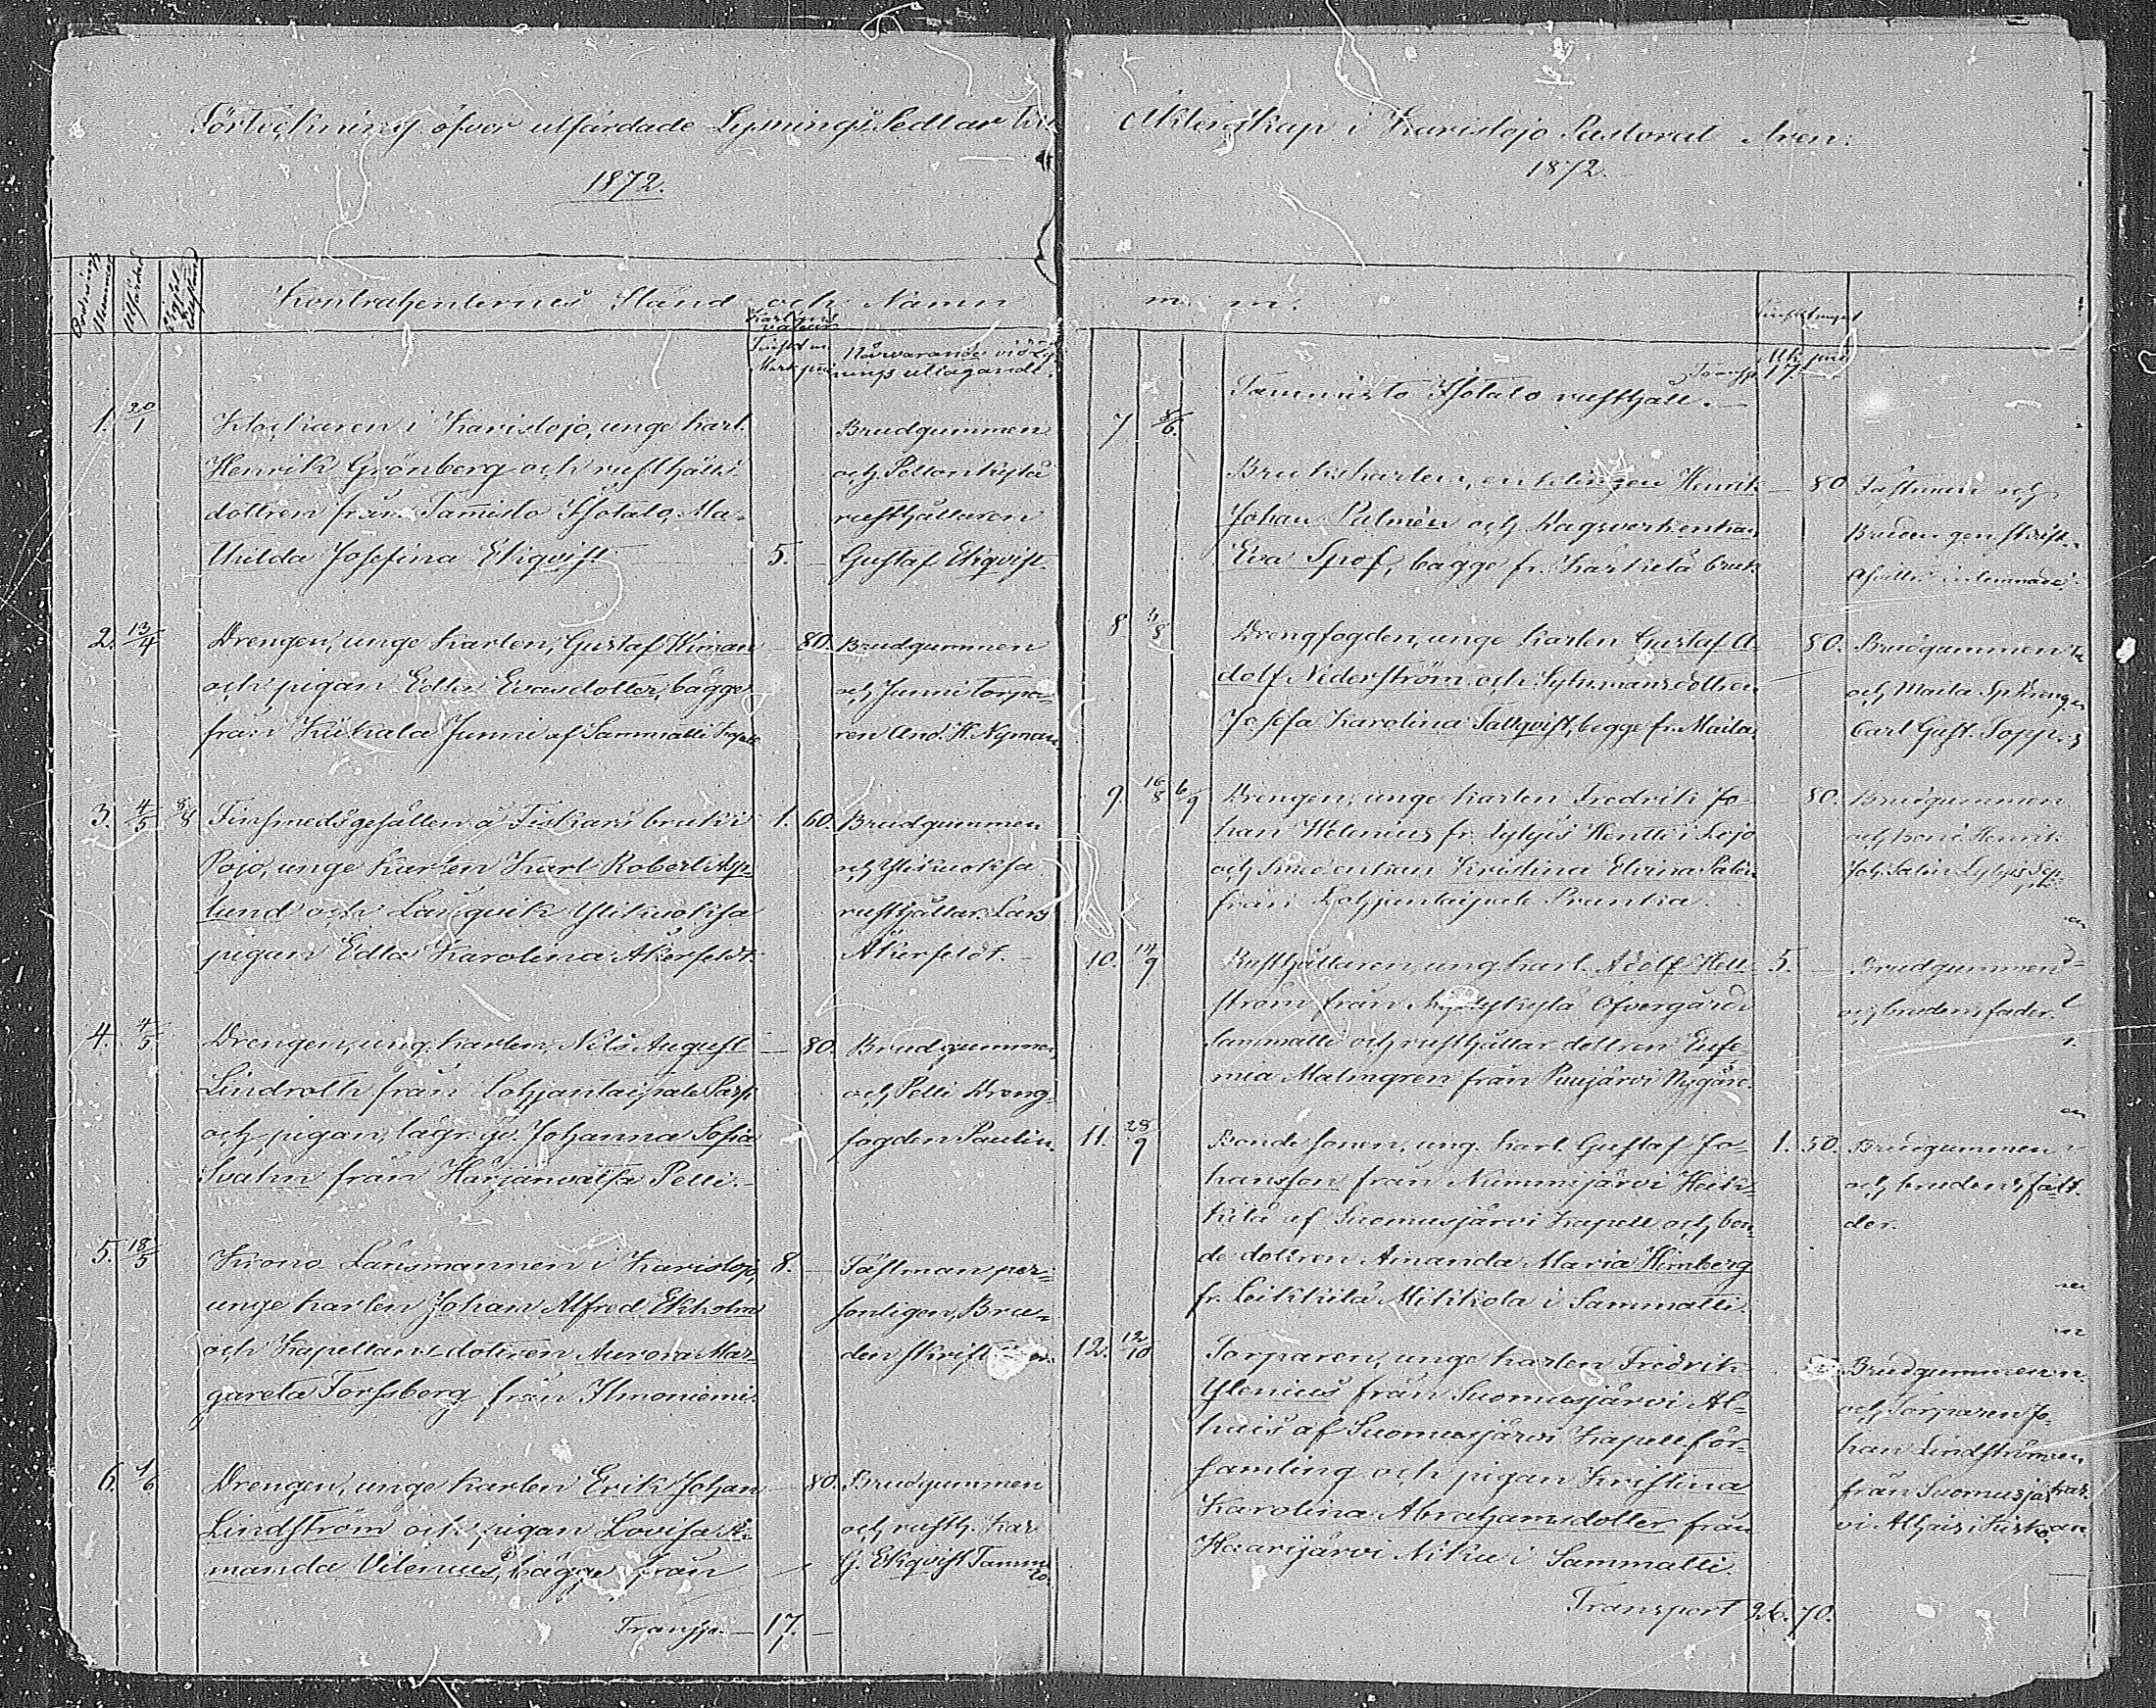 Förteckning öfver utfärdade Lysnings Sedlar till
1872.
Ordnings Nummer
Utfärdad
Kontrahenternes Stånd och Namn
Närvarande vid Lys-
nings uttagande.
1. 20/1 Klockaren i Karislojo, unge karl.
Henrik Grönberg och rusthålls
dottren från Tammisto Isotalo, Ma-
thilda Josefina Ekqvist. 5. —
Brudgummen
och Pellonkylä
rusthållaren
Gustaf Ekqvist.
2. 13/4 Drengen, unge karlen, Gustaf Wiman
och pigan Edla Evasdotter, bägge
från Kiikala Junni af Sammatti kapell
— 80.
Brudgummen
och Junni torpa-
ren And. H. Nyman.
3. 4/5 8/8 Finsmedsgesällen å Fiskars bruk i
Pojo, unge karlen Karl Robert Asp-
lund och Långvik Ylikuoksa
pigan Edla Karolina Åkerfeldt.
1. 60.
Brudgummen
och Ylikuoksa
rusthållar. Lars
Åkerfeldt.
4. 4/5 Drengen, ung. karlen, Nils August
Lindroth från Lohjantaipale
och pigan, lägr. qv. Johanna Sofia
Svahn från Härjänvatsa Pelli.
— 80.
Brudgummen
och Pelli dreng-
fogden Paulin.
5. 18/5 Krono Länsmannen i Karislojo,
unge karlen Johan Alfred Ekholm
och Kapellans dottren Aurora Mar-
gareta Forssberg från Ilmoniemi.
8. —
Fästman per-
sonligen, Bru-
den
6. 1/6 Drengen, unge karlen Erik Johan
Lindström och pigan Lovisa A-
manda Vilenius, bägge från
— 80.
Brudgummen
och rusth. Kar
G. Ekqvist Tammis
to.
Transp. — 17. —
Äktenskap i Karislojo Pastorat Åren:
1872.
m. m.
Mk pni
Transp. 17. —
Tammisto Isotalo rusthåll. —
7 8/6. Bruks karlen, enklingen Henrik
Johan Palmén och
Eva Spof, bägge fr. Kärkelä bruk.
— 80
Fästman och
Bruden gen skrift.
8 3/8 Drengfogden, unge karlen Gustaf A-
dolf Nederström och Sytningsmansdottren
Josefa Karolina Tallqvist, begge fr. Maila.
80.
Brudgummen
och Maila Sp. drengen
Carl Gust. Topp.
9. 16/8 6/9 Drengen, unge karlen Fredrik Jo-
han Welenius fr. Lylyis Hentti i Lojo
och Smedenkan Kristina Elvina Salén
från Lohjantaipale Prunka.
— 80.
Brudgummen
och bond. Henrik
Joh. Salin Lylyis Sep
pä.
10. 14/9 Rusthållaren, ung. karl. Adolf Hell-
ström från Myllykylä Öfvergård i
Sammatti och rusthållar dottren Eufe-
mia Malmgren från Puujärvi Nygård.
5. —
Brudgummen
och brudens fader.
11. 28/9 Bonde sonen, ung. karl. Gustaf Jo-
hansson från Nummijärvi Heik-
kilä af Suomusjärvi kapell och bon-
de dottren Amanda Maria Himberg
fr. Leikkilä Mikkola i Sammatti.
1. 50.
Brudgummen
och brudens fa-
der.
12. 12/10 Torparen, unge karlen Fredrik
Ylenius från Suomusjärvi Al-
hais af Suomusjärvi Kapell för-
samling och pigan Kristina
Karolina Abrahamsdotter från
Haarijärvi Niku i Sammatti.
Brudgummen
och torparen Jo-
han Lindström
från Suomusjär-
vi Alhais i Kisko.
Transport 26. 70.